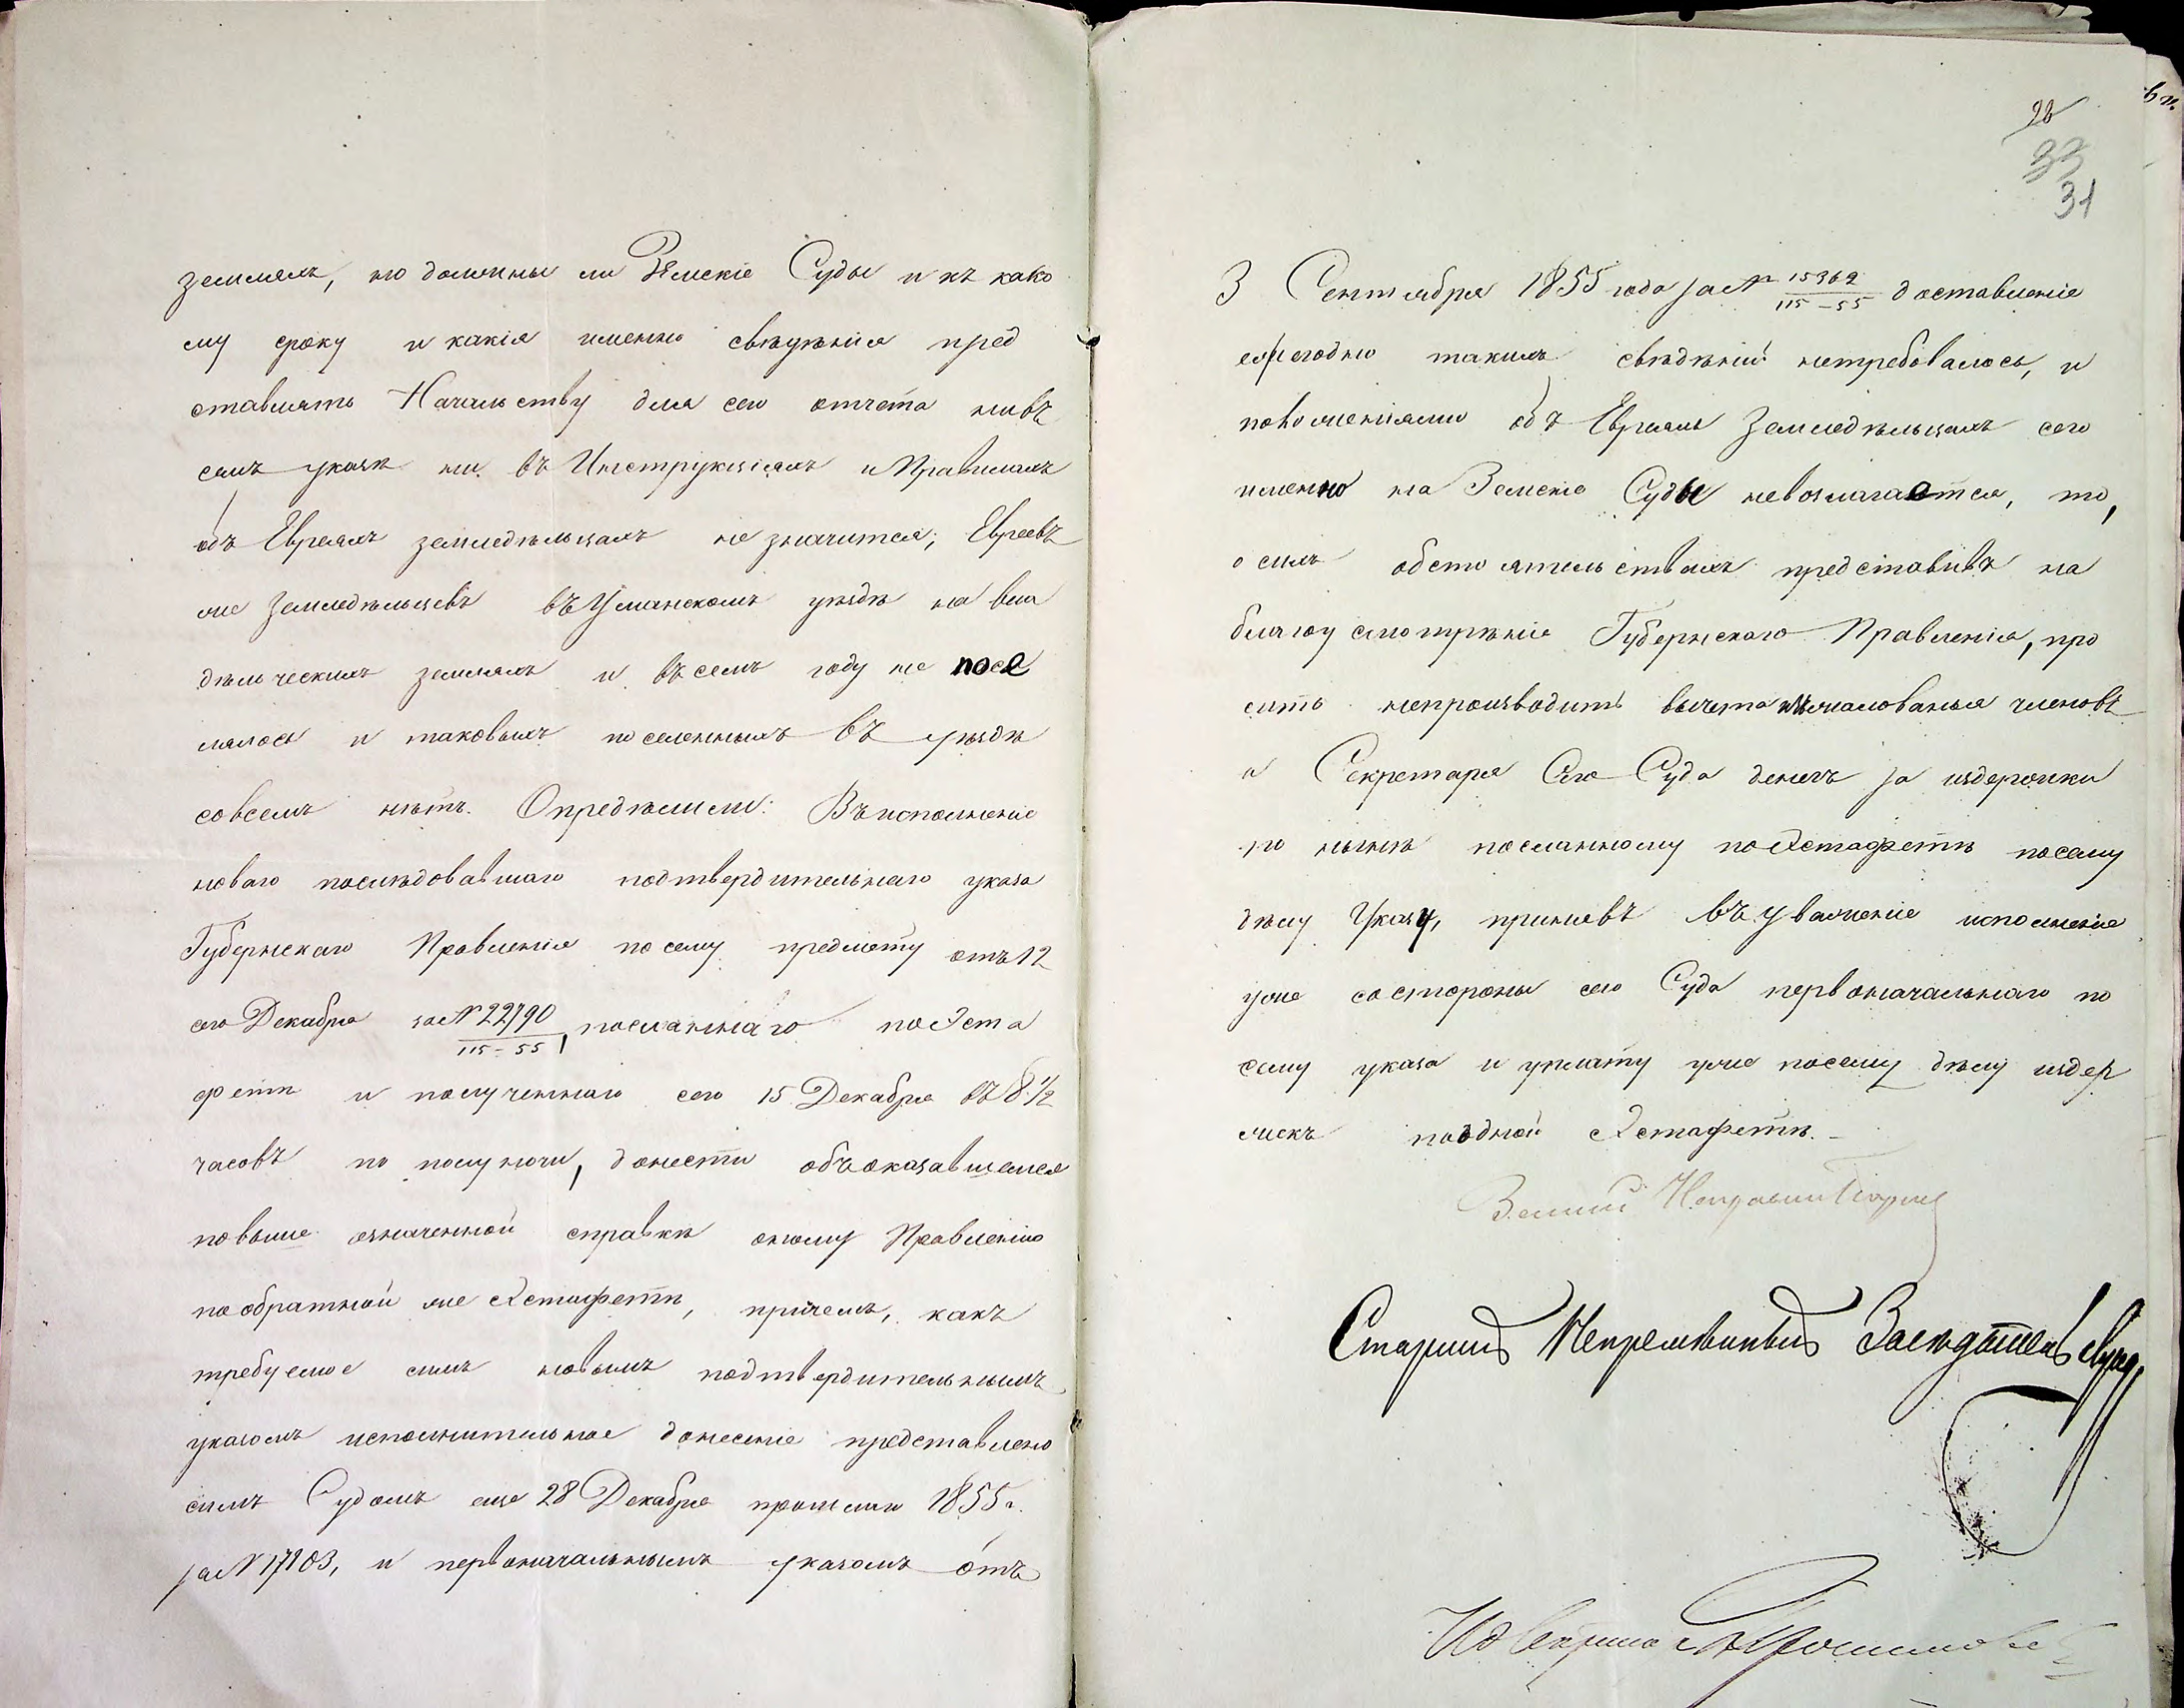 землямъ, но должны ли Земскіе Суды и къ како
му сроку и какія именно свѣдѣнія пред
ставлять Начальству для сего отчета нивъ
семъ указѣ ни въ Инструкціяхъ и Правилахъ
объ Евреяхъ земледѣльцахъ не значится; Евреевъ
же земледѣльцевъ въ Уманскомъ уѣздѣ на вла
дѣльческихъ земляхъ и въ семъ году не посе
лялось и таковыхъ поселенныхъ въ уѣздѣ
совсемъ нѣтъ. Опредѣлили: Въ исполненіе
новаго послѣдовавшаго подтвердительнаго указа
Губернскаго Правленія по сему предмету отъ 12
сего Декабря за № 22790/115-55, посланнаго по Эста
фетѣ и полученнаго сего 15 Декабря въ 8 1/2
часовъ по полуночи, донести объ оказавшемся
по выше означенной справкѣ оному Правленію
по обратной же Эстафетѣ, причемъ, какъ
требуемое симъ новымъ подтвердительнымъ
указомъ исполнительное донесеніе представлено
симъ Судомъ еще 28 Декабря прошлаго 1855 г.
за № 17903, и первоначальнымъ указомъ отъ
33
31
3 Сентября 1855 года за № 15362/115-55 доставленіе
ежегодно такихъ свѣдѣній нетребовалось, и
положеніями объ Евреяхъ Земледѣльцахъ сего
именно на Земскіе Суды невозлагается, то,
о сихъ обстоятельствахъ представивъ на
благоусмотрѣніе Губернскаго Правленія, про
сить непроизводить вычета изъ жалованья членовъ
и Секретаря сего Суда денегъ за издержки
по нынѣ посланному по Эстафетѣ посему
дѣлу Указу, принявъ въ уваженіе исполненіе
уже со стороны сего Суда первоначальнаго по
сему указа и уплату уже посему дѣлу издер
жекъ по одной Эстафетѣ.
Земскій Исправникъ
Старшій Непремѣнный Засѣдатель